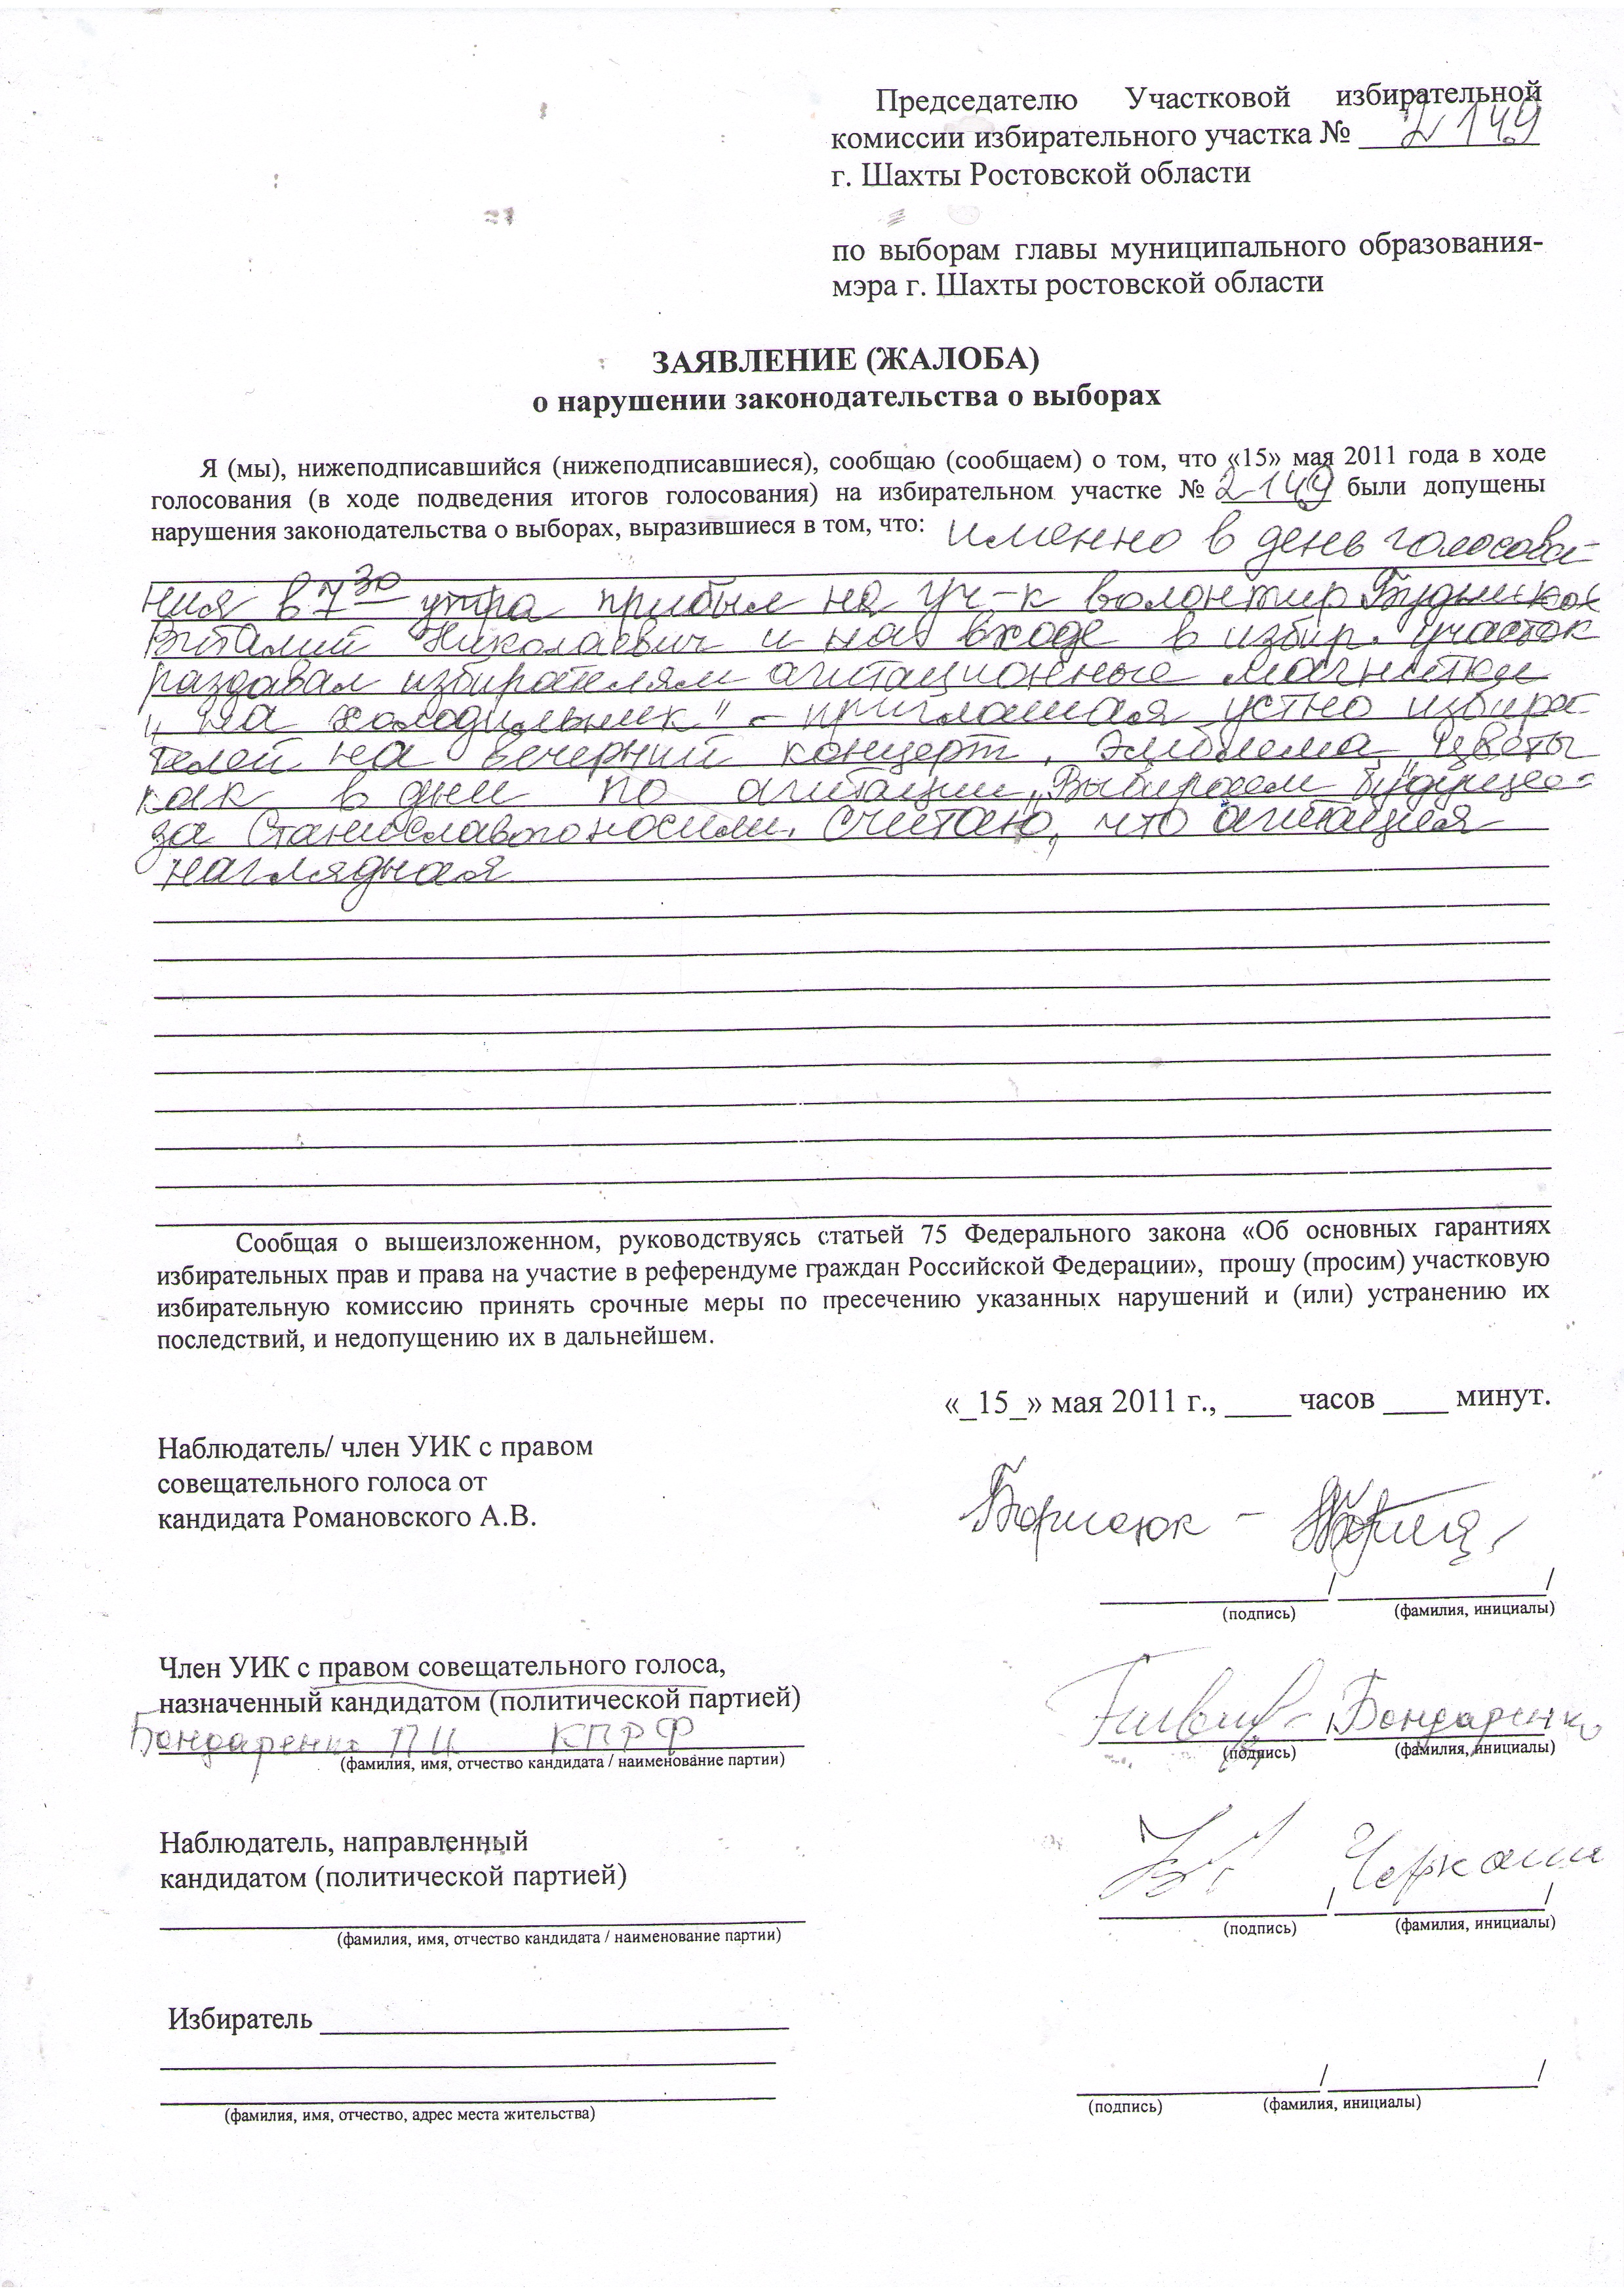 Председателю Участковой избирательной
комиссии избирательного участка № 2149
г. Шахты Ростовской области
по выборам главы муниципального образования-
мэра г. Шахты ростовской области
ЗАЯВЛЕНИЕ (ЖАЛОБА)
о нарушении законодательства о выборах
Я (мы), нижеподписавшийся (нижеподписавшиеся), сообщаю (сообщаем) о том, что «15» мая 2011 года в ходе
голосования (в ходе подведения итогов голосования) на избирательном участке № 2149 были допущены
нарушения законодательства о выборах, выразившиеся в том, что: именно в день голосова-
ния в 7 30 утра прибыл на уч-к волонтир
Виталий Николаевич и на входе в избир. участок
раздавал избирателям агитационные магнитки
„на холодильник" - приглашая устно избира-
телей на вечерний концерт, эмблема „цветы
как в дни по агитации „Выбираем будущее"
за Станиславого носили. Считаю, что агитация
наглядная
Сообщая о вышеизложенном, руководствуясь статьей 75 Федерального закона «Об основных гарантиях
избирательных прав и права на участие в референдуме граждан Российской Федерации», прошу (просим) участковую
избирательную комиссию принять срочные меры по пресечению указанных нарушений и (или) устранению их
последствий, и недопущению их в дальнейшем.
«_15_» мая 2011 г., ____ часов ____ минут.
Наблюдатель/ член УИК с правом
совещательного голоса от
кандидата Романовского А.В.
Борисюк -
/ /
(подпись) (фамилия, инициалы)
Член УИК с правом совещательного голоса,
назначенный кандидатом (политической партией)
Бондаренко П И КПРФ / Бондаренко
(фамилия, имя, отчество кандидата / наименование партии) (подпись) (фамилия, инициалы)
Наблюдатель, направленный
кандидатом (политической партией)
/ /
(фамилия, имя, отчество кандидата / наименование партии) (подпись) (фамилия, инициалы)
Избиратель
/ /
(фамилия, имя, отчество, адрес места жительства) (подпись) (фамилия, инициалы)